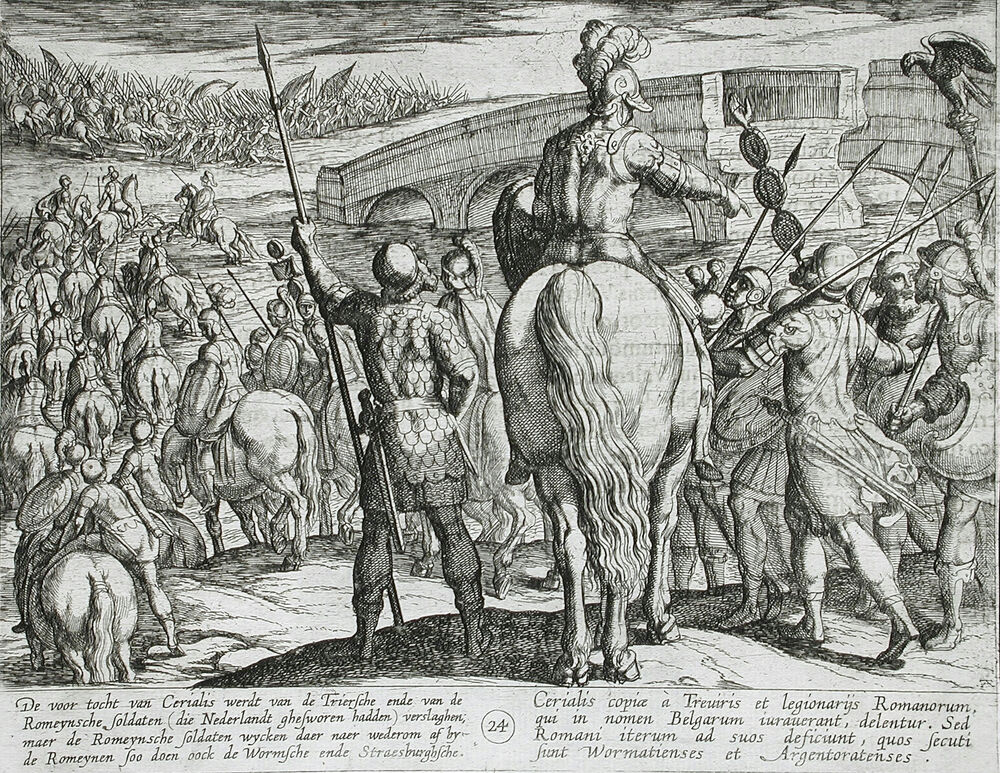 De voor tocht van Cerialis werdt van de Triersche ende van de
Romeynsche soldaten (die Nederlandt ghesworen hadden) verslaghen;
maer de Romeynsche soldaten wycken daer naer wederom af by-
de Romeynen soo doen oock de Wormsche ende Straesburghsche.
24
Cerialis copiæ à Treuiris et legionarijs Romanorum,
qui in nomen Belgarum iurauerant, delentur. Sed
Romani iterum ad suos deficiunt, quos secuti
sunt Wormatienses et Argentoratenses.